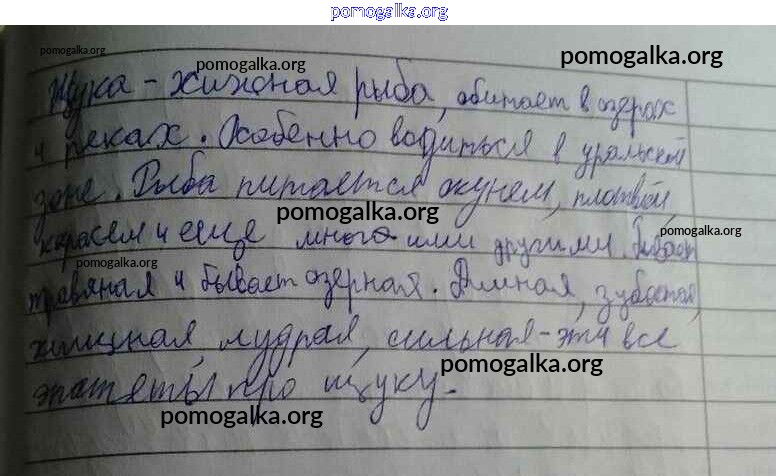 pomogalka.org
pomogalka.org
pomogalka.org
pomogalka.org
Щука - хищная рыба, обитает в озерах
и реках. Особенно водиться в уральской
зоне. Рыба питается окунем, плотвой,
pomogalka.org
карасем и еще много или другими. Бывает
pomogalka.org
pomogalka.org
травяная и бывает озерная. Длинная, зубастая,
хищная, мудрая, сильная - эти все
pomogalka.org
эпитеты про щуку.
pomogalka.org